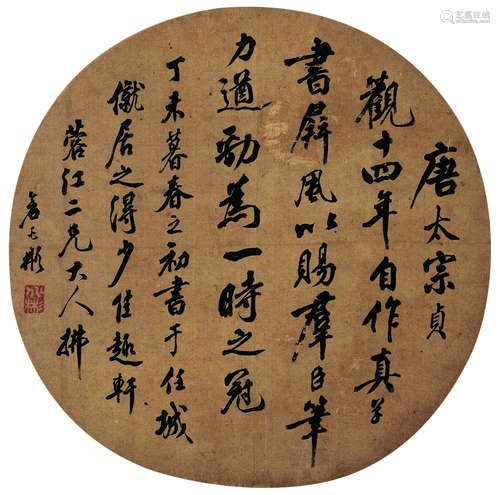 唐太宗貞
觀十四年自作真草
書屏風以賜羣臣筆
力遒勁為一時之冠
丁未暮春之初書于任城
僦居之得少佳趣軒
蓉江二兄大人拂
彬
艺易拍